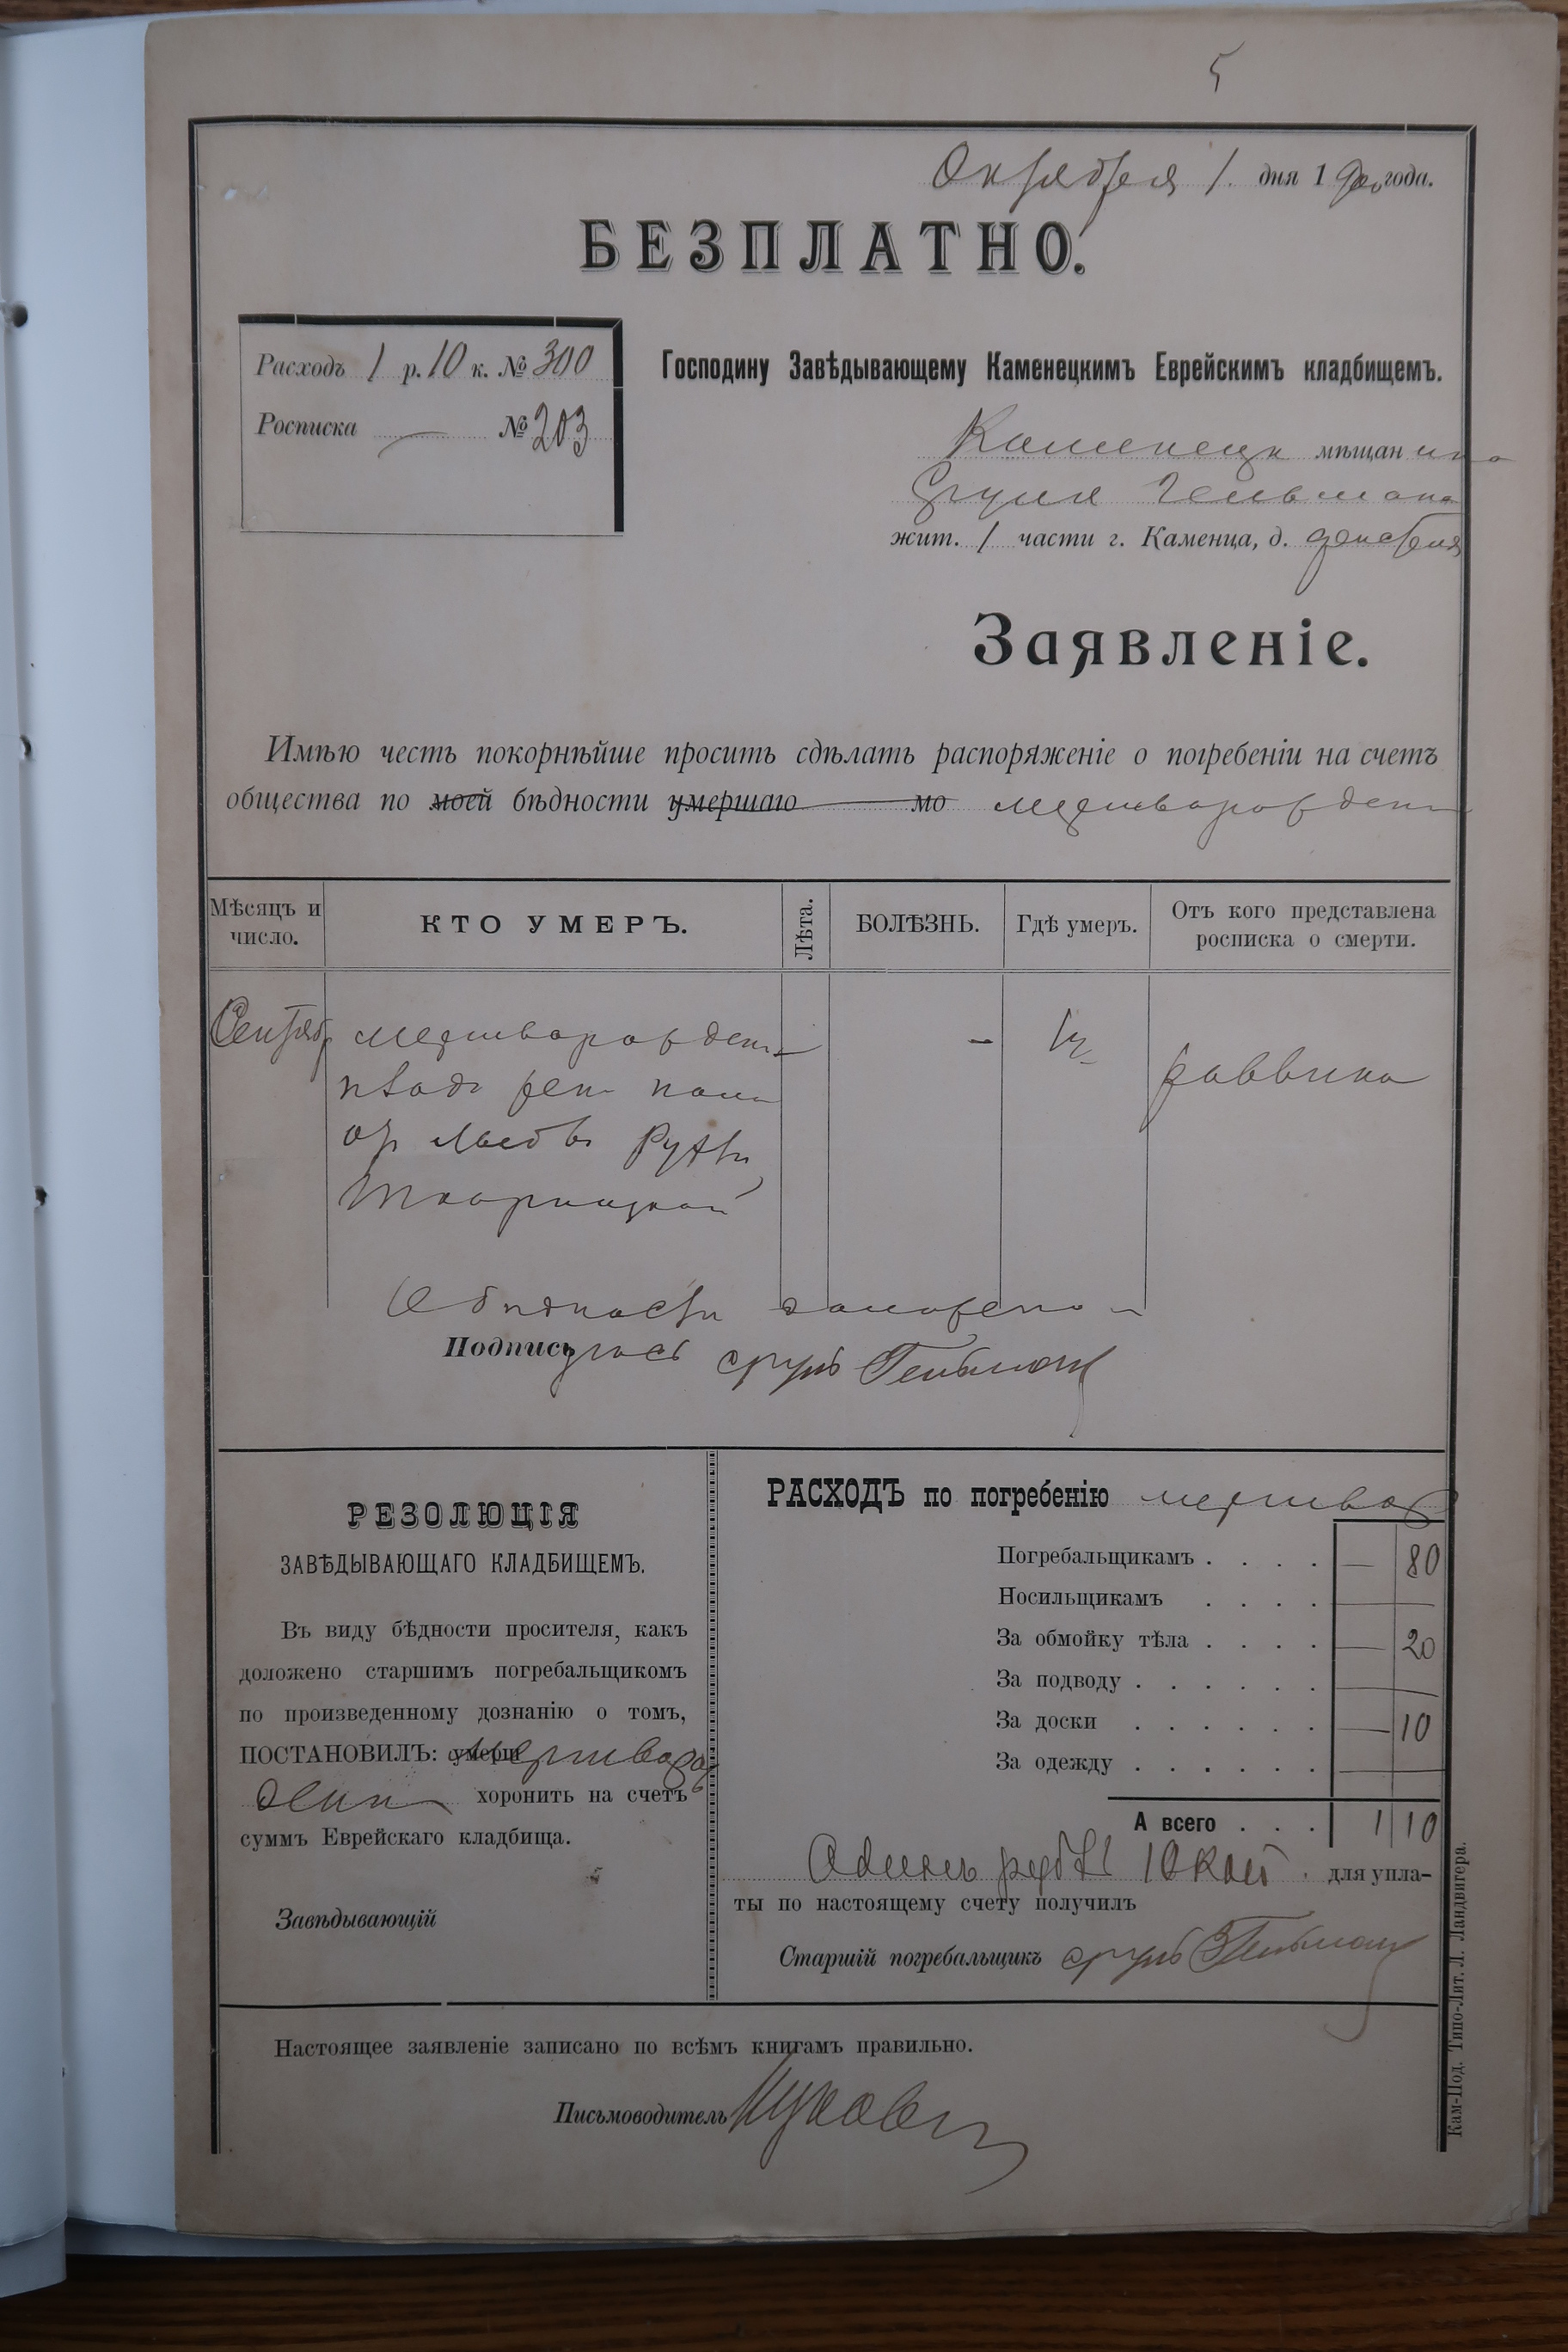 5
Октября 1. дня 1900 года.
БЕЗПЛАТНО.
Расходъ 1 р. 10 к. № 300
Росписка — № 203
Господину Завѣдывающему Каменецкимъ Еврейскимъ кладбищемъ.
Каменецк мѣщанина
Сруля Гельмана
жит. 1 части г. Каменца, д.
Заявленіе.
Имѣю честь покорнѣйше просить сдѣлать распоряженіе о погребеніи на счетъ
общества по моей бѣдности умершаго мо мертворожден
Мѣсяцъ и число.
КТО УМЕРЪ.
Лѣта.
БОЛѢЗНЬ.
Гдѣ умеръ.
Отъ кого представлена росписка о смерти.
Сентябр мертворожден — раввина
плодъ
Рухли
О бѣдности
Подпись Сруль Гельман
РЕЗОЛЮЦІЯ
ЗАВѢДЫВАЮЩАГО КЛАДБИЩЕМЪ.
Въ виду бѣдности просителя, какъ
доложено старшимъ погребальщикомъ
по произведенному дознанію о томъ,
ПОСТАНОВИЛЪ: умерш мертворож
ден хоронить на счетъ
суммъ Еврейскаго кладбища.
Завѣдывающій
РАСХОДЪ по погребенію мертвор
Погребальщикамъ . . . . — 80
Носильщикамъ . . . . —
За обмойку тѣла . . . . — 20
За подводу . . . . . . —
За доски . . . . . . — 10
За одежду . . . . . . —
А всего . . . 1 10
Одинъ рубль 10 коп. для упла-
ты по настоящему счету получилъ
Старшій погребальщикъ Сруль Гельман
Настоящее заявленіе записано по всѣмъ книгамъ правильно.
Письмоводитель
Кам-Под. Типо-Лит. Л. Ландвигера.